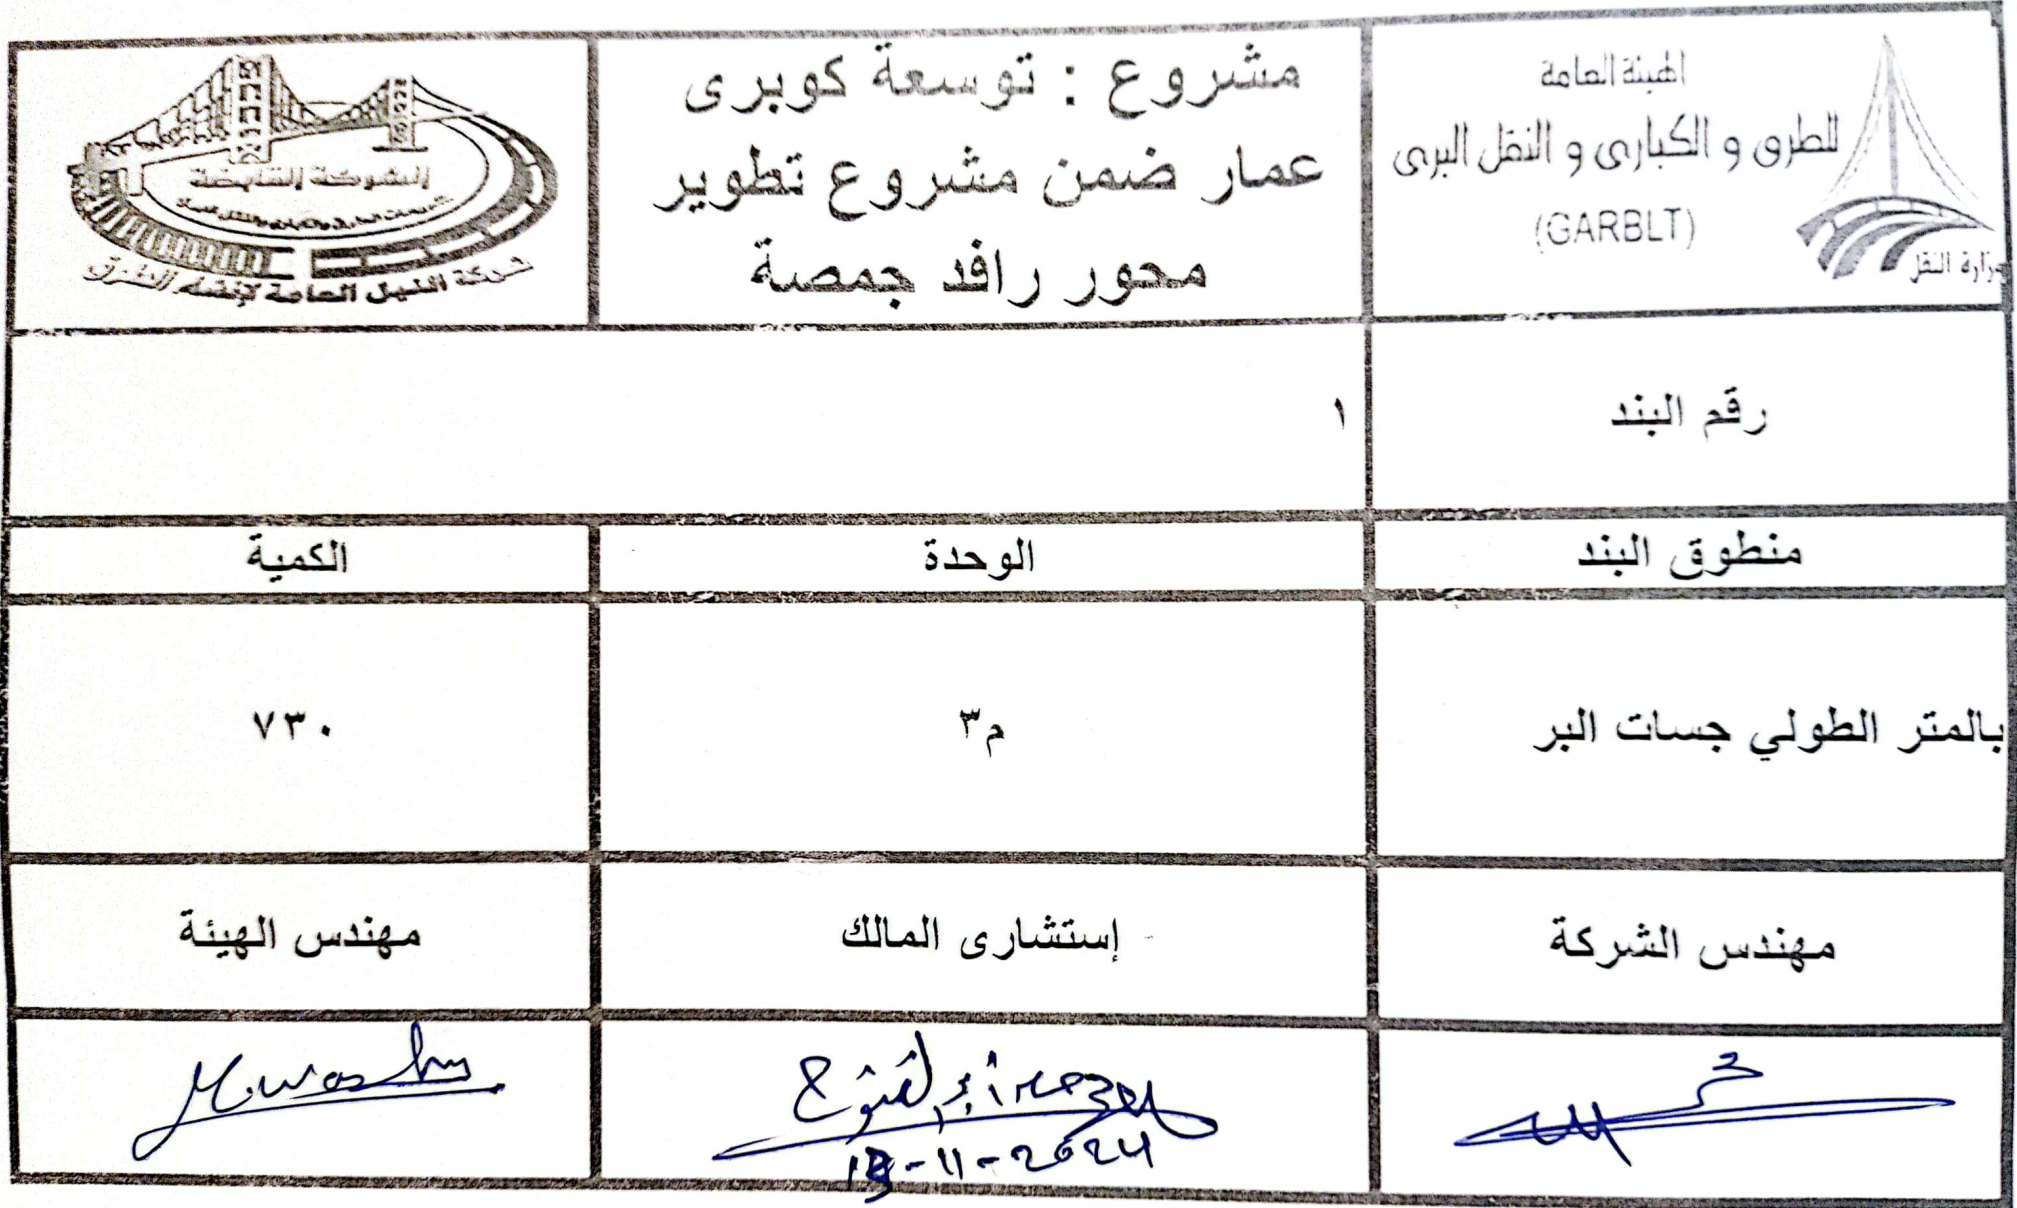 الهيئة العامة
للطرق و الكبارى و النقل البرى
(GARBLT)
وزارة النقل
مشروع : توسعة كوبرى
عمار ضمن مشروع تطوير
محور رافد جمصة
الشركة القابضة
شركة النيل العامة لإنشاء الطرق
رقم البند
١
منطوق البند
الوحدة
الكمية
بالمتر الطولي جسات البر
م٣
٧٣٠
مهندس الشركة
إستشارى المالك
مهندس الهيئة
-11-2024